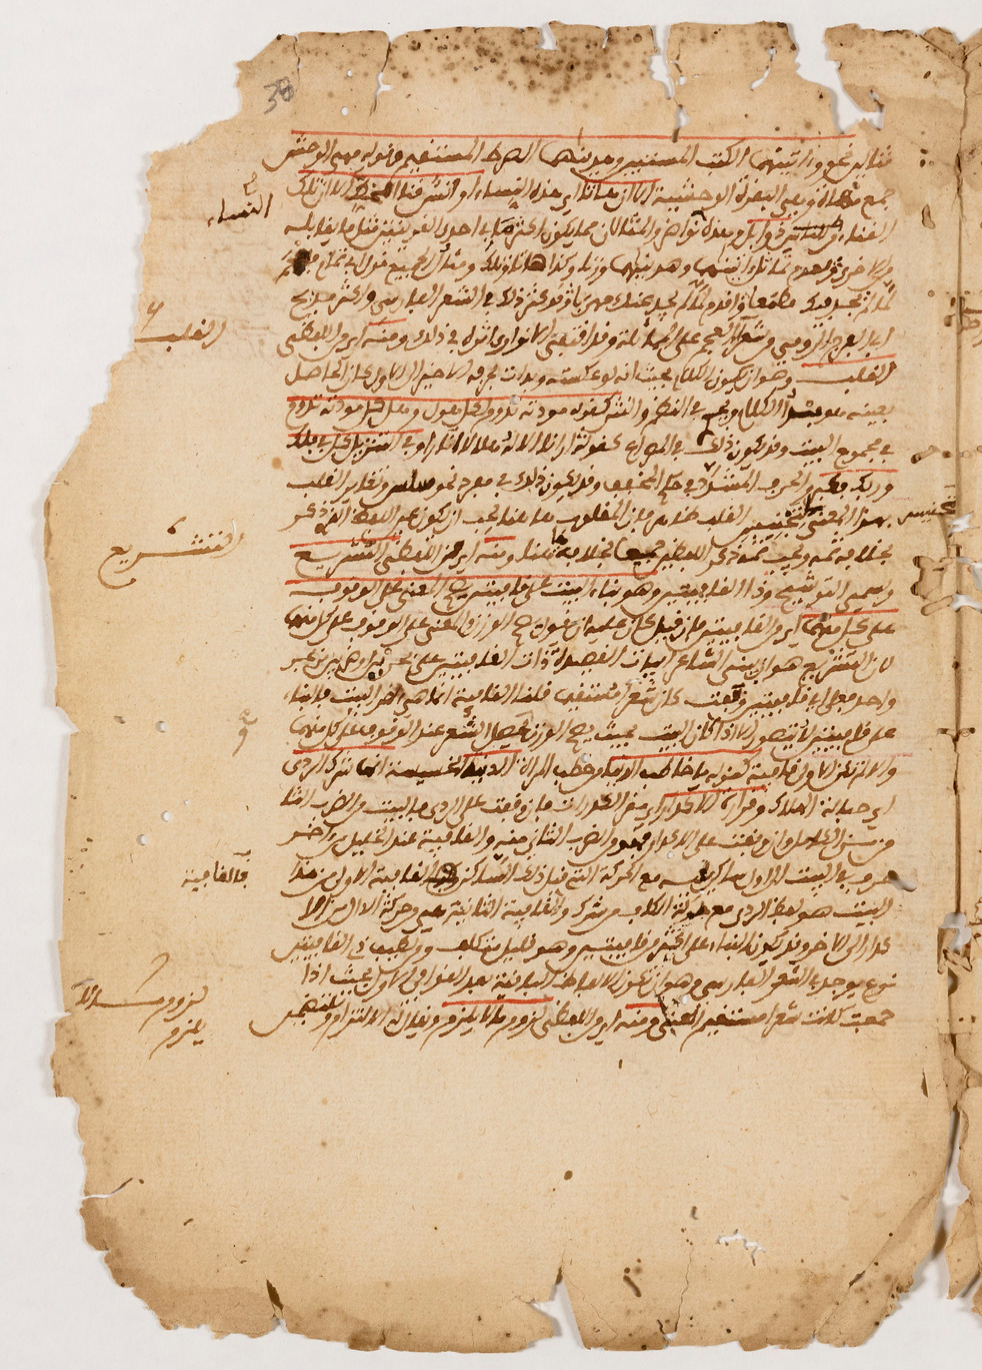 مثاله نحو وءاتينهما الكتب المستبين وهدينهما الصرط المستقيم وقوله مهى الوحش
جمع مهاة وهي البقرة الوحشية الا ان هاتا اي هذه النساء اوانس قنا الخط الا ان تلك
النساء
القناء ذوابل وهذه نواضر والمثالان مما يكون اكثر ما في احدى القرينتين مثل ما يقابله
من الاخرى لعدم تماثل اتينهما وهدينهما وزنا وكذا هاتا وتلك ومثال الجميع قول ابي تمام
لما لم يجد فيك مطمعا واقدم لما لم يجد عنك مهربا وقد كثر ذلك في الشعر الفارسي واكثر مدايح
ابي الفرج الرومي من شعراء العجم على المماثلة وقد اقتفى الانوري اثره في ذلك ومنه اي من اللفظي
القلب
القلب وهو ان يكون الكلام بحيث انه لو عكسته وبدات بحرفه الاخير الى الاول كان الحاصل
بعينه هو هذا الكلام ويجري في النظم والنثر كقوله مودته تدوم لكل هول وهل كل مودته تدوم
في مجموع البيت وقد يكون ذلك في المصراع كقوله ارانا الاله هلالا انارا وفي التنزيل كل في فلك
وربك فكبر والحرف المشدد في حكم المخفف وقد يكون ذلك في مفرد نحو سلس وتغاير القلب
بهذا المعنى لتجنيس القلب ظاهر فان المقلوب ها هنا يجب ان يكون عين اللفظ الذي ذكر
تجنيس
بخلافه ثمه ويجب ثمه ذكر اللفظين جميعا بخلافه هنا ومنه اي من اللفظي التشريع
التشريع
ويسمى التوشيح وذا القافيتين وهو بناء البيت على قافيتين يصح المعنى عند الوقوف
على كل منهما اي من القافيتين فان قيل كان عليه ان يقول يصح الوزن والمعنى عند الوقوف على كل منهما
لان التشريع هو ان يبني الشاعر ابيات القصيدة ذات القافيتين على بحرين او ضربين من بحر
واحد فعلى اي قافيتين وقفت كان شعرا مستقيما قلنا القافية انما هي اخر البيت فالبناء
على قافيتين لا يتصور الا اذا كان البيت بحيث يصح الوزن ويحصل الشعر عند الوقوف على كل منهما
والا لم تكن الاولى قافية كقوله يا خاطب الدنيا من خطب المراة الدنية الخسيسة انها شرك الردى
اي حبالة الهلاك وقرارة الاكدار اي مقر الكدورات فان وقفت على الردى فالبيت من الضرب الثامن
من الكامل وان وقفت على الاكدار فهو من الضرب الثاني منه والقافية عند الخليل من اخر
حرف في البيت الى اول ساكن يليه مع الحركة التي قبل ذلك الساكن فالقافية الاولى من هذا
فالقافية
البيت هو لفظ الردى مع حركة الكاف من شرك والقافية الثانية هي حركة الدال من الا
كدار الى الاخر وقد يكون البناء على اكثر من قافيتين وهو قليل متكلف ومن لطيف ذي القافيتين
نوع يوجد في الشعر الفارسي وهو ان تكون الالفاظ الباقية بعد القوافي الاول بحيث اذا
جمعت كانت شعرا مستقيم المعنى ومنه اي من اللفظي لزوم ما لا يلزم ويقال له الالتزام والتضمين
لزوم ما لا
يلزم